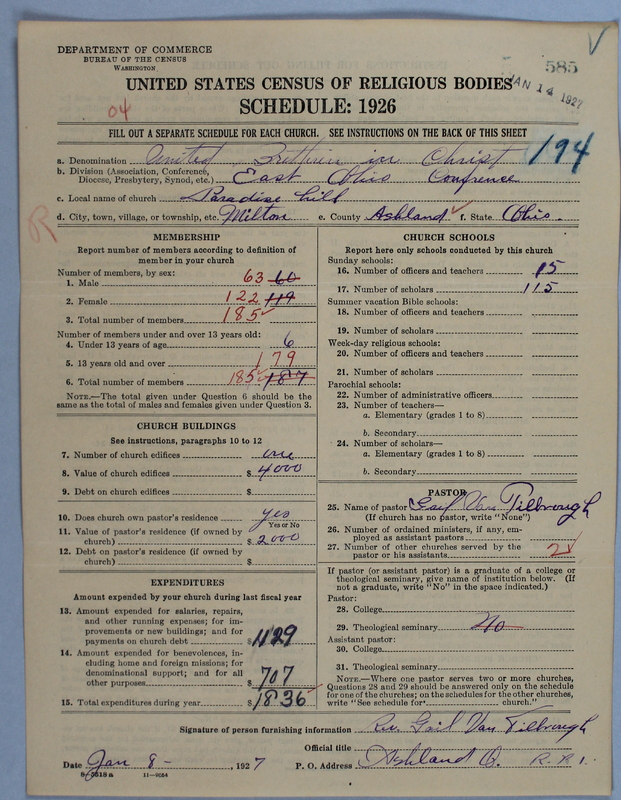 DEPARTMENT OF COMMERCE
BUREAU OF THE CENSUS
WASHINGTON
585
JAN 14 1927
UNITED STATES CENSUS OF RELIGIOUS BODIES
SCHEDULE: 1926
04
FILL OUT A SEPARATE SCHEDULE FOR EACH CHURCH. SEE INSTRUCTIONS ON THE BACK OF THIS SHEET
194
a. Denomination United Brethren in Christ
b. Division (Association, Conference, Diocese, Presbytery, Synod, etc.) East Ohio Conference
c. Local name of church Paradise hill
d. City, town, village, or township, etc. Milton e. County Ashland f. State Ohio.
R
MEMBERSHIP
Report number of members according to definition of
member in your church
Number of members, by sex:
1. Male 63 60
2. Female 122 119
3. Total number of members 185
Number of members under and over 13 years old:
4. Under 13 years of age 6
5. 13 years old and over 179
6. Total number of members 185 187
NOTE.—The total given under Question 6 should be the
same as the total of males and females given under Question 3.
CHURCH BUILDINGS
See instructions, paragraphs 10 to 12
7. Number of church edifices one
8. Value of church edifices $ 4000
9. Debt on church edifices $
10. Does church own pastor's residence yes
Yes or No
11. Value of pastor's residence (if owned by
church) $ 2000
12. Debt on pastor's residence (if owned by
church) $
EXPENDITURES
Amount expended by church during last fiscal year
13. Amount expended for salaries, repairs,
and other running expenses; for im-
provements or new buildings; and for
payments on church debt $ 1129
14. Amount expended for benevolences, in-
cluding home and foreign missions; for
denominational support; and for all
other purposes $ 707
15. Total expenditures during year $ 1836
CHURCH SCHOOLS
Report here only schools conducted by this church
Sunday schools:
16. Number of officers and teachers 15
17. Number of scholars 115
Summer vacation Bible schools:
18. Number of officers and teachers
19. Number of scholars
Week-day religious schools:
20. Number of officers and teachers
21. Number of scholars
Parochial schools:
22. Number of administrative officers
23. Number of teachers—
a. Elementary (grades 1 to 8)
b. Secondary
24. Number of scholars—
a. Elementary (grades 1 to 8)
b. Secondary
PASTOR
25. Name of pastor Gail Van Tilbrough
(If church has no pastor, write "None")
26. Number of ordained ministers, if any, em-
ployed as assistant pastors
27. Number of other churches served by the
pastor or his assistants 2
If pastor (or assistant pastor) is a graduate of a college or
theological seminary, give name of institution below. (If
not a graduate, write "No" in the space indicated.)
Pastor:
28. College
29. Theological seminary No
Assistant pastor:
30. College
31. Theological seminary
NOTE.—Where one pastor serves two or more churches,
Questions 28 and 29 should be answered only on the schedule
for one of the churches; on the schedules for the other churches,
write "See schedule for church."
Signature of person furnishing information Rev. Gail Van Tilbrough
Official title
Date Jan 8 - , 1927 P. O. Address Ashland O. R.R.1.
8-5518a 11-9054